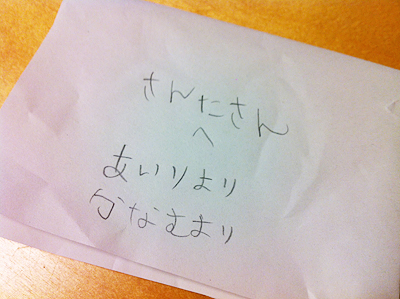 さんたさん
へ
あいりより
かなむより